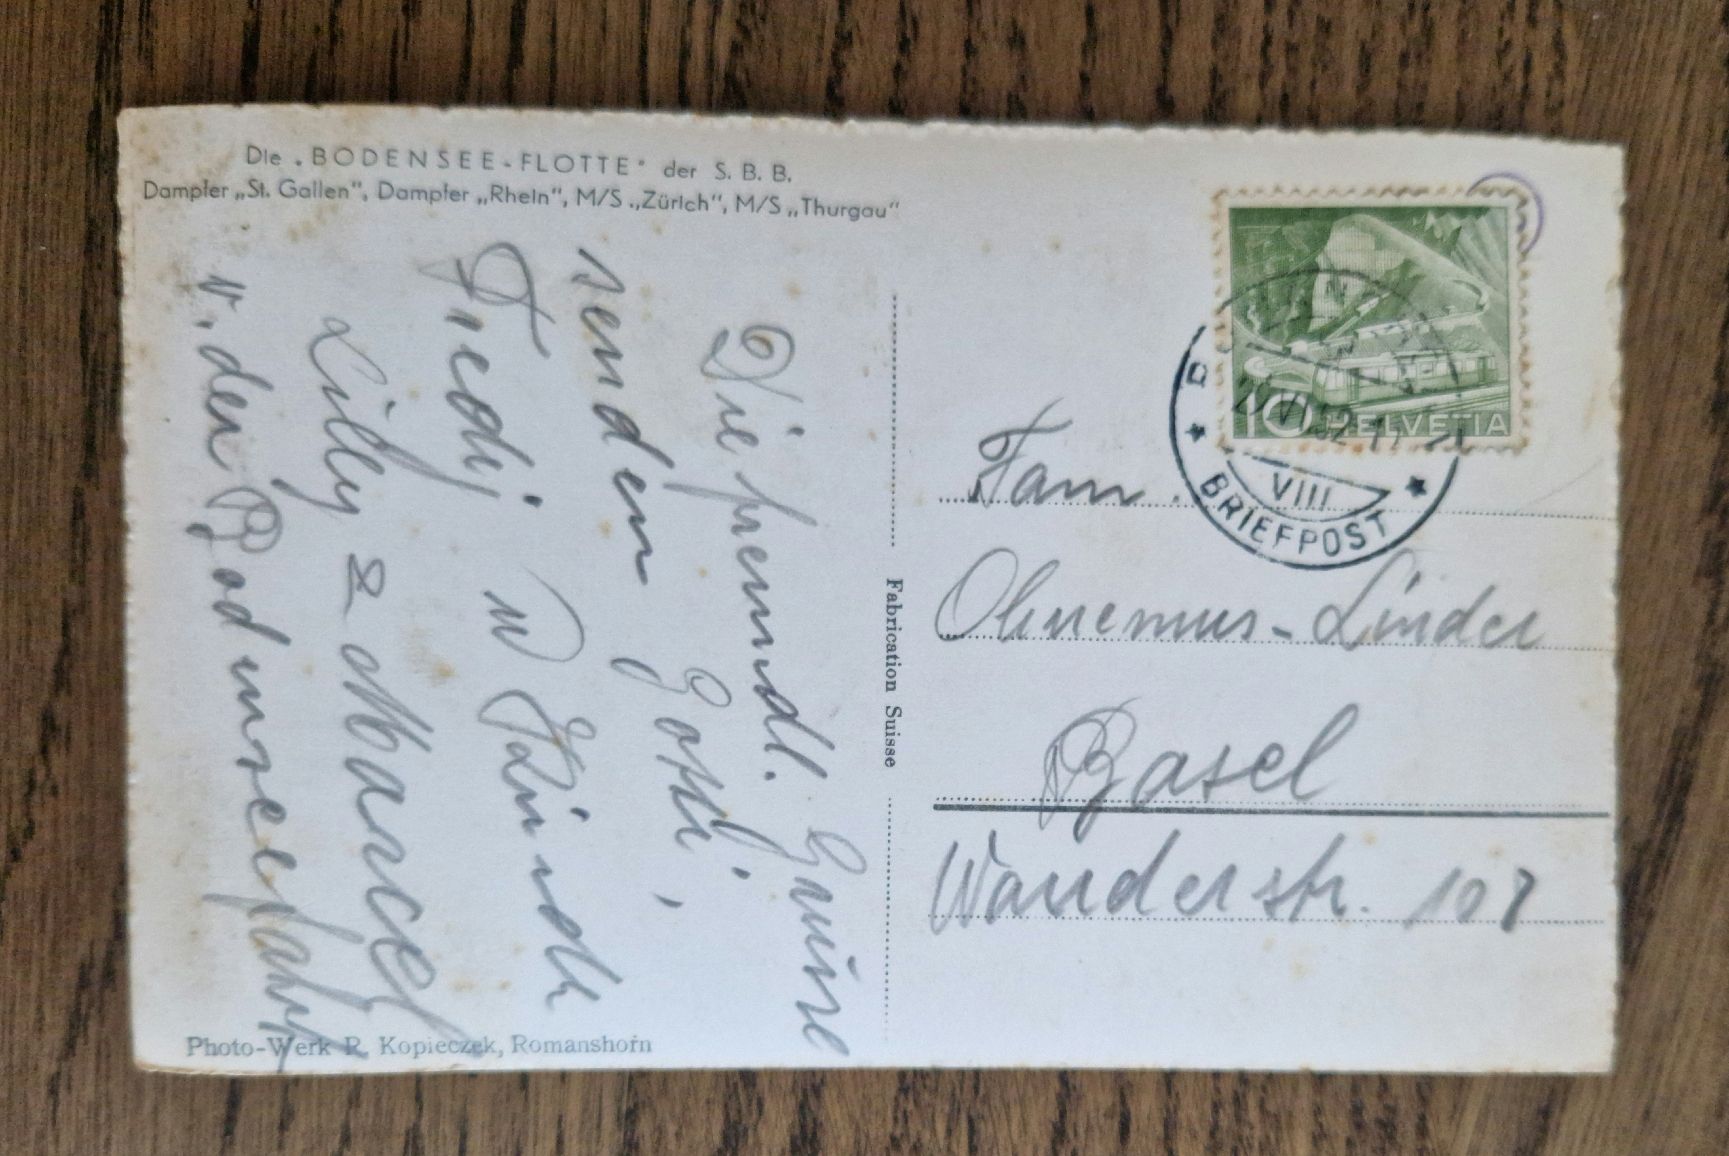 Die „BODENSEE-FLOTTE" der S. B. B.
Dampfer „St. Gallen", Dampfer „Rhein", M/S „Zürich", M/S „Thurgau"
Die freundl. Grüsse
senden Gotti,
Fredi u
Lilly & Marcel
v. der Bodenseefahrt
Photo-Werk R. Kopieczek, Romanshorn
Fabrication Suisse
10 HELVETIA
VI.52
VIII
BRIEFPOST
Fam.
Ohnemus-Linder
Basel
Wanderstr. 107